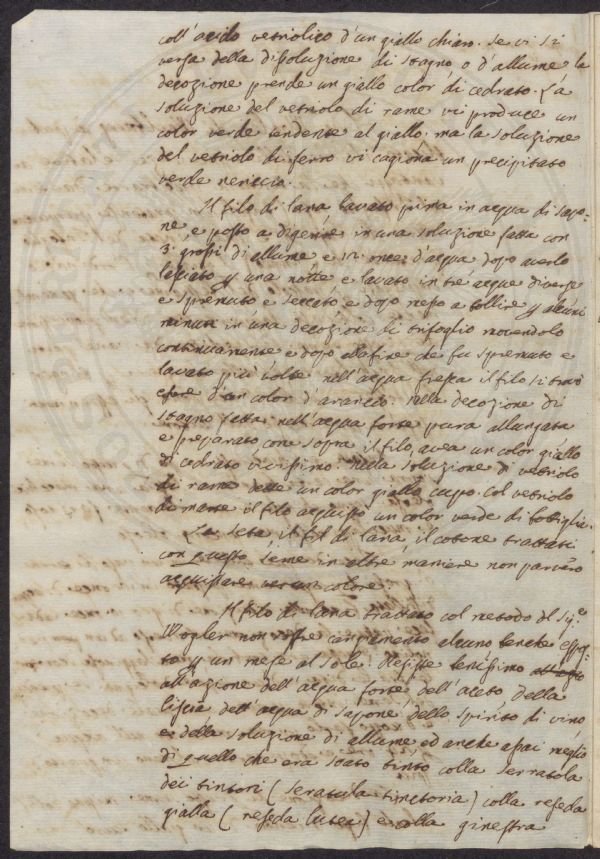 coll'acido vetriolico d'un giallo chiaro. Se vi si
versa della dissoluzione di stagno o d'allume la
decozione prende un giallo color di cedrato. La
soluzione del vetriolo di rame vi produce un
color verde tendente al giallo. ma la soluzione
del vetriolo di ferro vi cagiona un precipitato
verde nericcio.
Il filo di lana lavato prima in acqua di sapo:
ne, e posto a digerire in una soluzione fatta con
3. grossi di allume e 12. once d'acqua dopo averlo
lasciato p una notte e lavato in tre acque diverse
e spremuto e seccato e dopo messo a bollire p alcuni
minuti in una decozione di trifoglio movendolo
continuamente e dopo alla fine che fu spremuto e
lavato più volte nell'acqua fresca il filo si trovò
essere d'un color d'arancio. Nella decozione di
stagno fatta nell'acqua forte pura allungata
e preparato con sopra il filo, avea un color giallo
di cedrato vivissimo. Nella soluzione di vetriolo
di rame dette un color giallo cupo. col vetriolo
di marte il filo acquistò un color verde di bottiglia.
La seta, il fil di lana, il cotone trattati
con questo seme in altre maniere non parvero
acquistare verun colore.
Il filo di lana trattato col metodo del Sig.e
Wogler non soffre cangiamento alcuno benche espos:
to p un mese al sole. Resiste benissimo
all'azione dell'acqua forte dell'aceto della
liscia dell'acqua di sapone, dello spirito di vino
e della soluzione di allume ed anche assai meglio
di quello che era stato tinto colla serratola
dei tintori (seratula tinctoria) colla reseda
gialla (reseda lutea) e colla ginestra